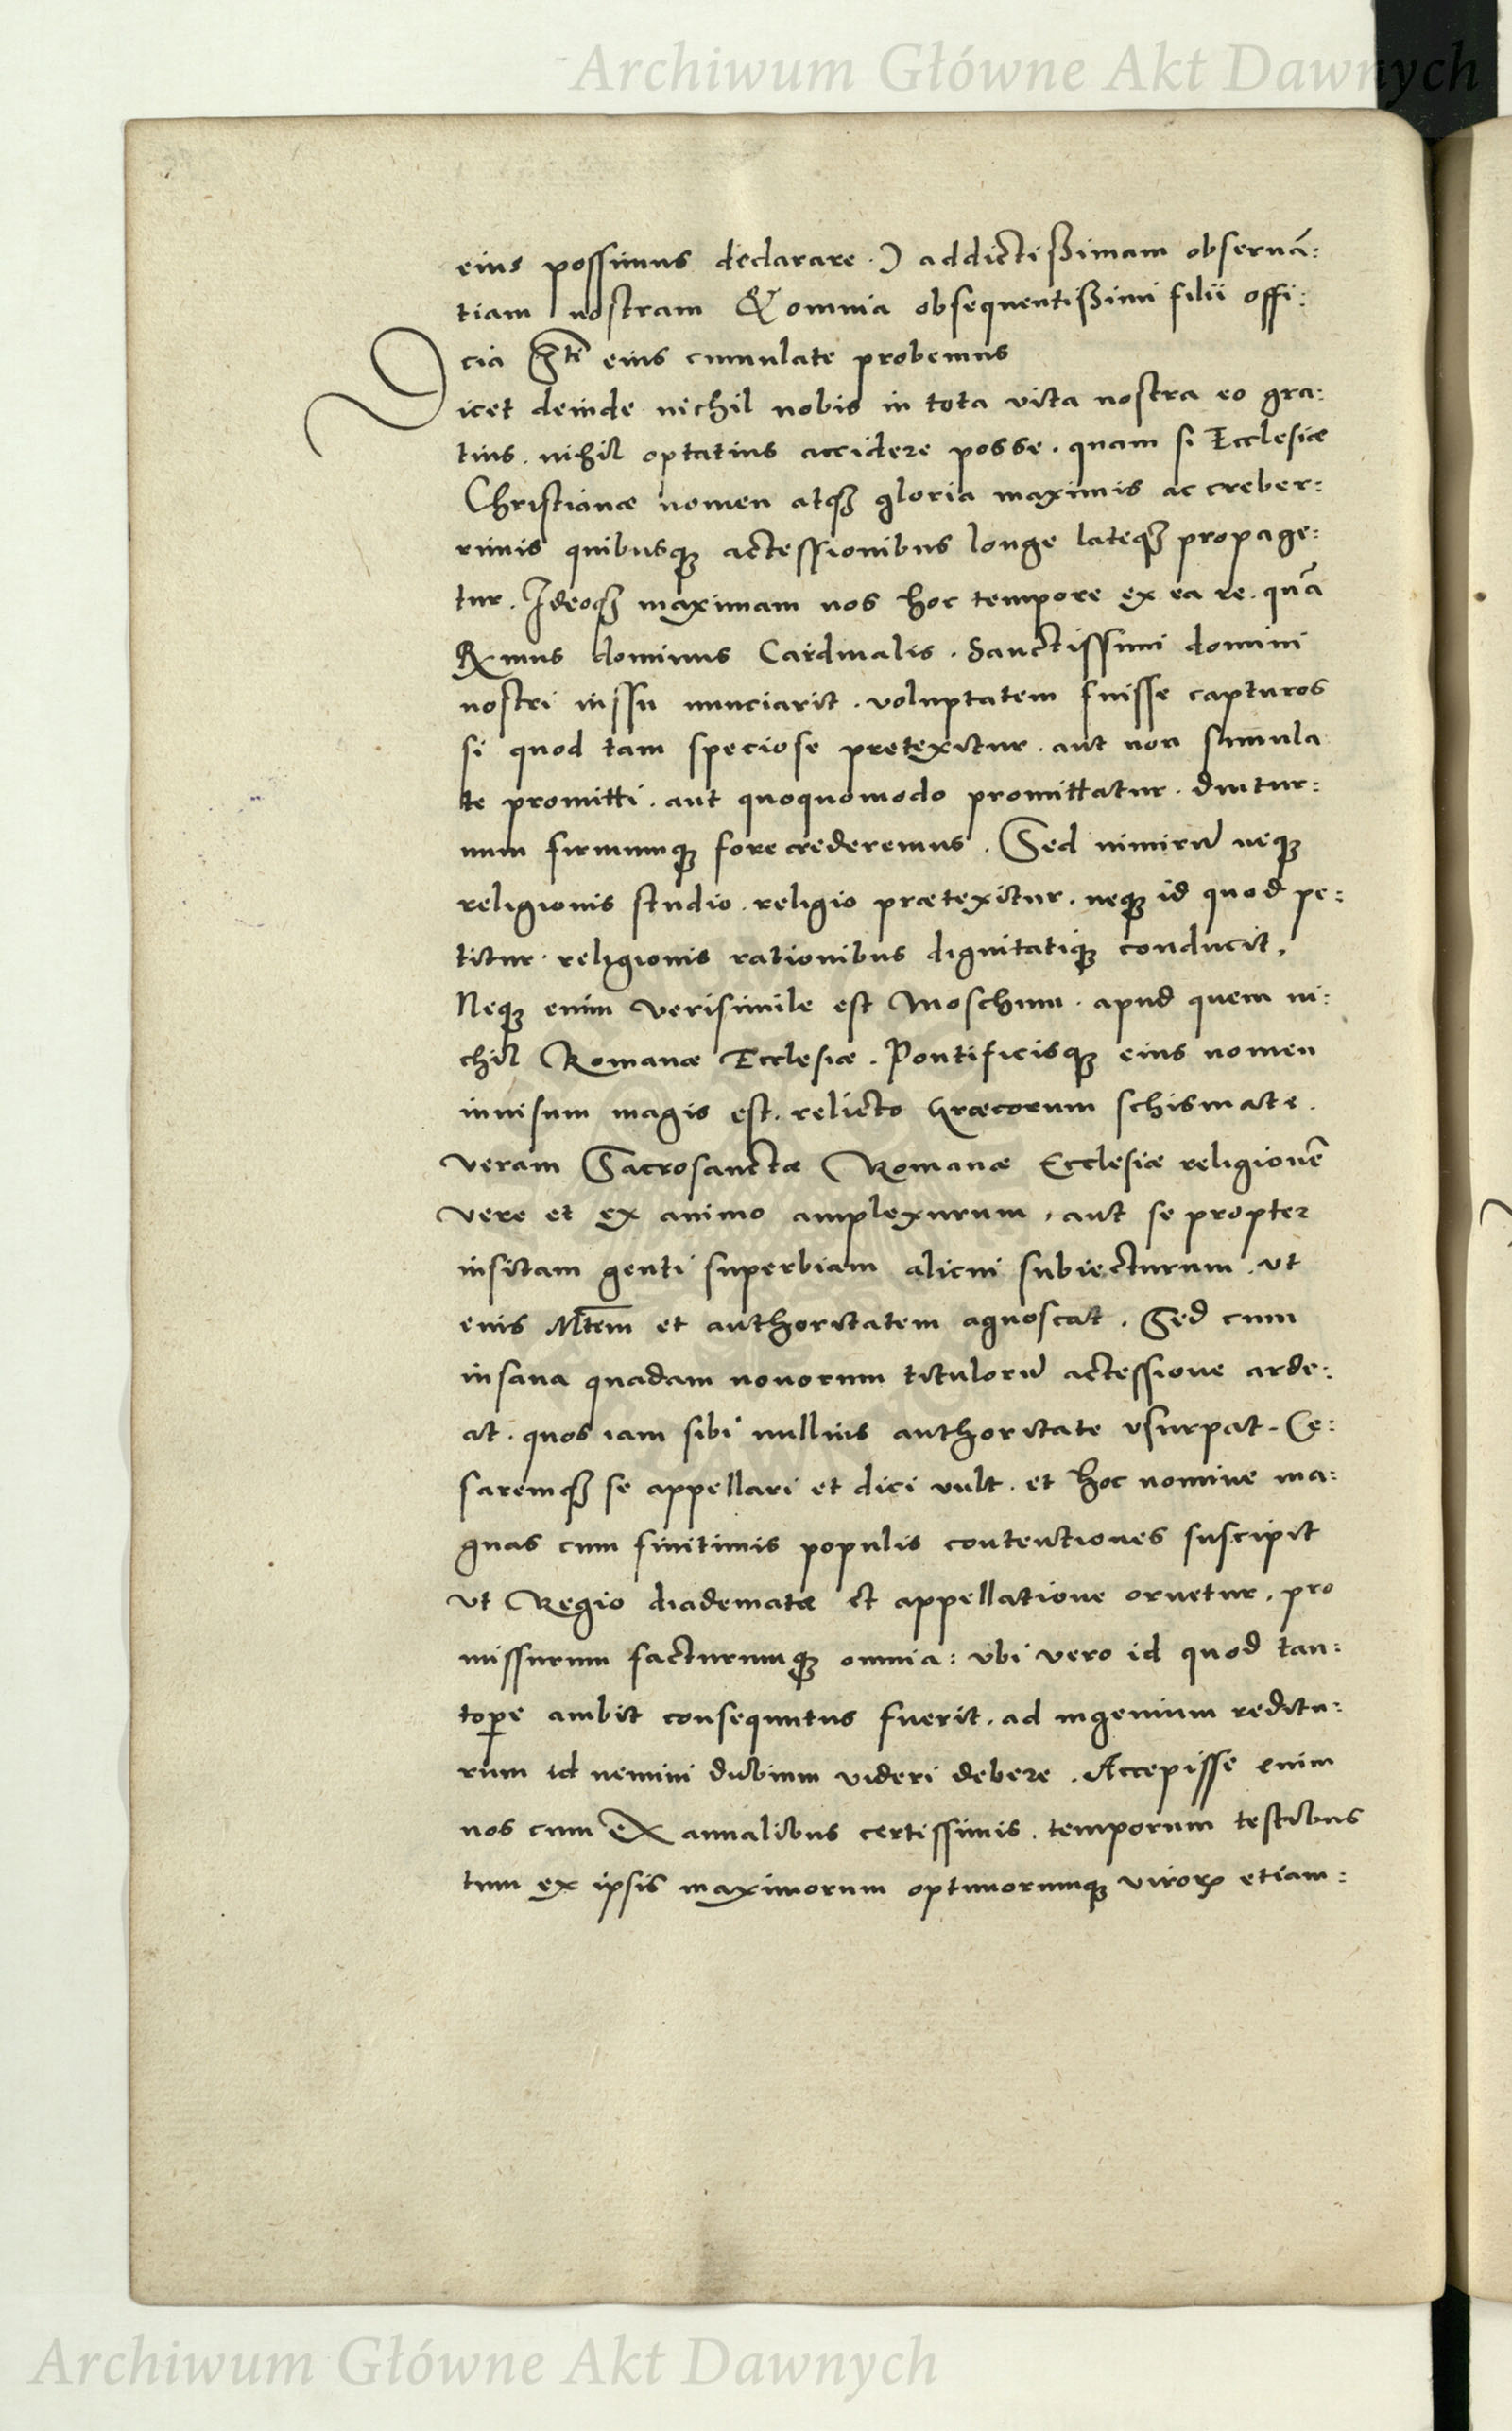 Archiwum Główne Akt Dawnych
eius possimus declarare.) addictißimam obseruã:
tiam nostram & omnia obsequentißimi filii offi:
cia S̃ti eius cumulate probemus
Dicet deinde nichil nobis in tota vita nostra eo gra:
tius. nihil optatius accidere posse. quam si Ecclesiæ
Christianæ nomen atqꝫ gloria maximis ac creber:
rimis quibusqꝫ accessionibus longe lateqꝫ propage:
tur. Ideoqꝫ maximam nos hoc tempore ex ea re. quã
Rxmus dominus Cardinalis. Sanctissimi domini
nostri iussu nunciarit. voluptatem fuisse capturos
si quod tam speciose pretexitur. aut non simula
te promitti. aut quoquomodo promittatur. diutur:
num firmumqꝫ fore crederemus. Sed nimirũ neqꝫ
religionis studio. religio prætexitur. neqꝫ id quod pe:
titur. religionis rationibus dignitatiqꝫ conducit.
Neqꝫ enim verisimile est Moschum. apud quem ni:
chil Romanæ Ecclesiæ. Pontificisqꝫ eius nomen
inuisum magis est. relicto Græcorum schismate.
veram Sacrosanctæ Romanæ Ecclesiæ religionẽ
vere et ex animo amplexurum, aut se propter
insitam genti superbiam alicui subiecturum. vt
eius M̃tem et authoritatem agnoscat. Sed cum
insana quadam nouorum titulorũ accessione arde:
at. quos iam sibi nullius authoritate vsurpat. Ce:
saremqꝫ se appellari et dici vult. et hoc nomine ma:
gnas cum finitimis populis contentiones suscipit
vt Regio diademate et appellatione ornetur. pro
missurum facturumqꝫ omnia: vbi vero id quod tan:
toꝑe ambit consequutus fuerit. ad ingenium reditu:
rum id nemini dubium videri debere. Accepisse enim
nos cum ex annalibus certissimis. temporum testibus
tum ex ipsis maximorum optimorumqꝫ virorꝝ etiam:
Archiwum Główne Akt Dawnych